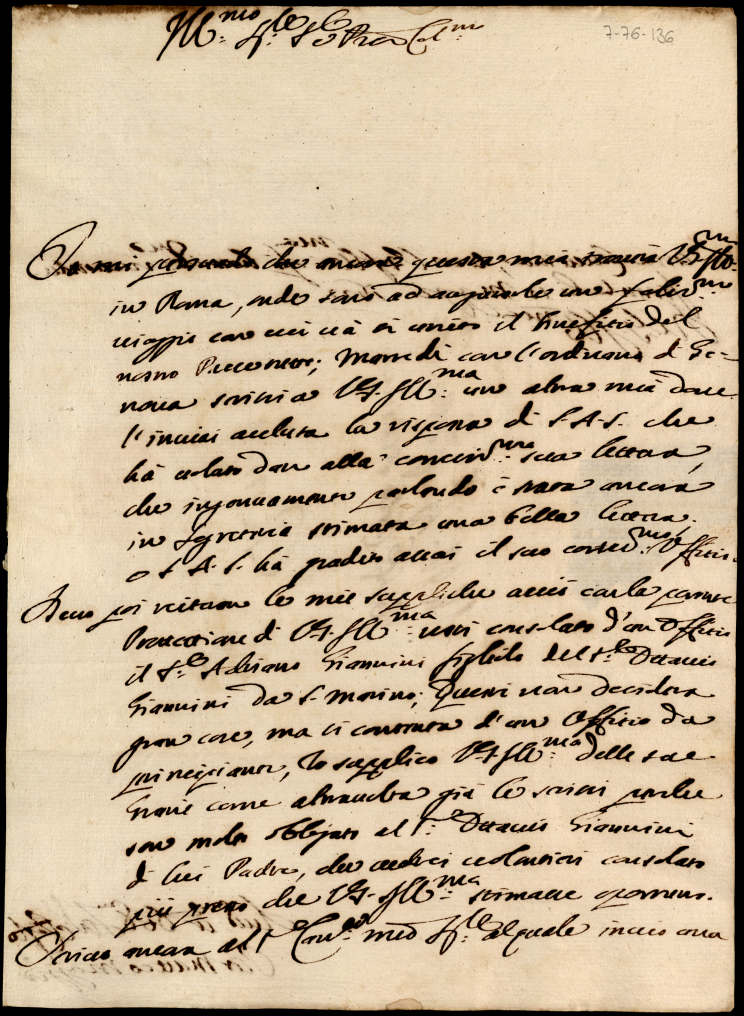 Ill.mo Sig.re Sig.re Pron Col.mo
7-76-136
Io mi persuado che ancora questa mia troverà VS. Ill.ma
in Roma, onde sarò ad augurarle un felic.mo
viaggio con cui và unito il Benefitio del
nostro Precettore; Martedì con l'ordinario di Ge-
nova scrissi a VS. Ill.ma una altra mia dove
l'inviai acclusa la risposta di S.A.S. che
hà dato alla sua lettera,
che ingenuamente parlando è stata ancora
in Segreteria stimata una bella lettera
e S.A.S. hà gradito assai il suo Offitio.
Devo poi reiterar le mie suppliche acciò con la
Protettione di VS. Ill.ma resti consolato d'un Offitio
il S.re Adriano Giannini figliolo del S.re Ottavio
Giannini da S. Marino; Questi non desidera
gran cose, ma si contenta d'un Offitio da
principiante, Io supplico VS. Ill.ma delle sue
gratie come altravolta già le scrissi perche
son molto obligato al S.re Ottavio Giannini
di lui Padre, che vedrei volontieri consolato
più presto che VS. Ill.ma stimasse opportuno.
Scrivo ancora al S.re med.mo al quale invio una